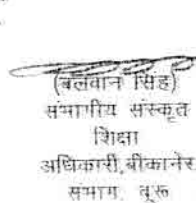 (बलवान सिंह)
संभागीय संस्कृत
शिक्षा
अधिकारी, बीकानेर
संभाग, चूरू